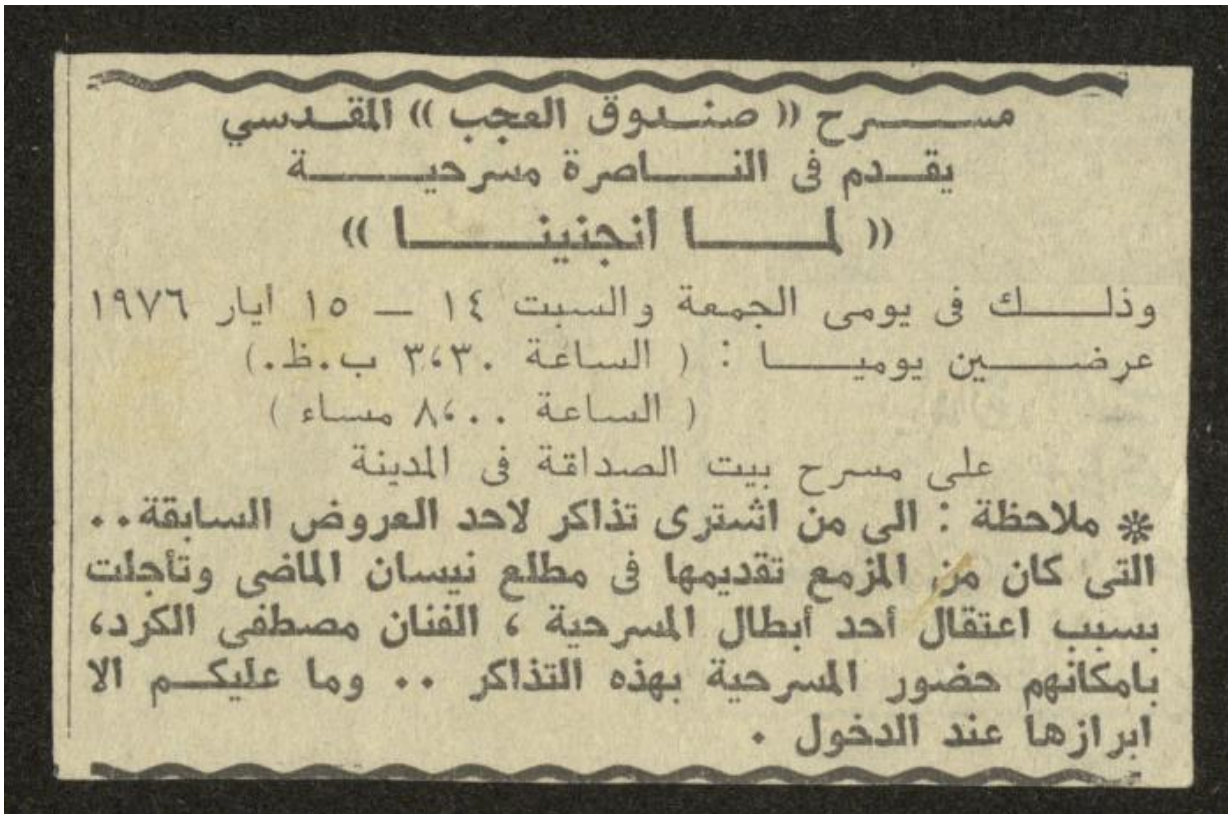 مسرح (( صندوق العجب )) المقدسي
يقدم فى الناصرة مسرحية
(( لما انجنينا ))
وذلك فى يومى الجمعة والسبت ١٤ — ١٥ أيار ١٩٧٦
عرضين يوميا : ( الساعة ٣،٣٠ ب.ظ.)
( الساعة ٨،٠٠ مساء )
على مسرح بيت الصداقة فى المدينة
* ملاحظة : الى من اشترى تذاكر لاحد العروض السابقة..
التى كان من المزمع تقديمها فى مطلع نيسان الماضى وتأجلت
بسبب اعتقال أحد أبطال المسرحية ، الفنان مصطفى الكرد،
بامكانهم حضور المسرحية بهذه التذاكر .. وما عليكم الا
ابرازها عند الدخول .